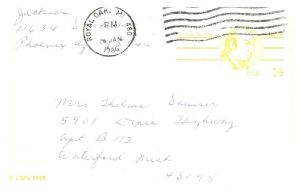 Jackson
11634
Phoenix
ROYAL OAK, MI 480
PM
JAN
1986
USA 14
Mrs Thelma
5901 Dixie Highway
Apt B 112
Waterford Mich
48095
© USPS 1985